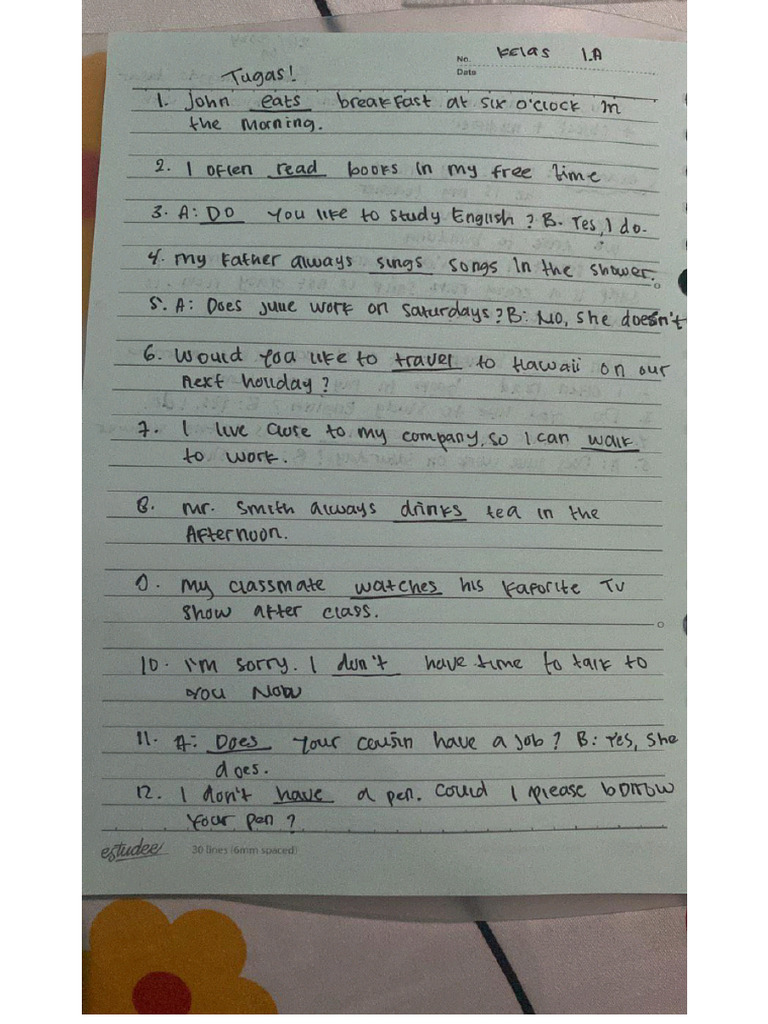 No. Kelas 1.A
Date
Tugas!
1. John eats breakfast at six o'clock in
the Morning.
2. I often read books in my free time
3. A: Do you like to study English? B. Yes, I do.
4. My Father always sings songs in the shower.
5. A: Does june work on saturdays? B: No, she doesn't
6. Would you like to travel to Hawaii on our
next holiday?
7. I live close to my company, so I can walk
to work.
8. Mr. Smith always drinks tea in the
Afternoon.
9. My classmate watches his Faporite TV
show after class.
10. I'm sorry. I don't have time to talk to
you Now
11. A: Does your cousin have a job? B: Yes, she
does.
12. I don't have a pen. Could I please borrow
your pen?
estudee 30 lines (6mm spaced)